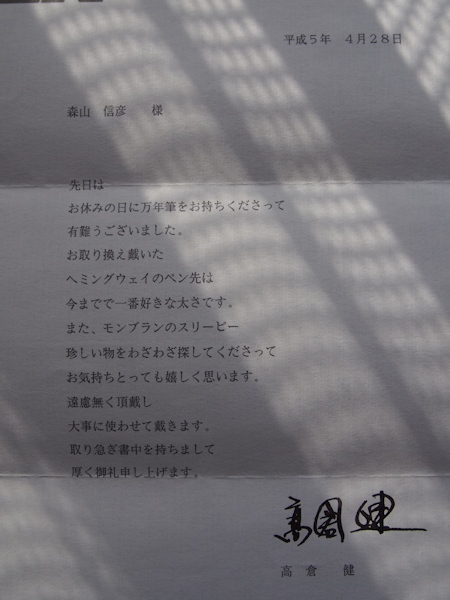 平成５年　４月２８日
森山　信彦　様
先日は
お休みの日に万年筆をお持ちくださって
有難うございました。
お取り換え戴いた
ヘミングウェイのペン先は
今までで一番好きな太さです。
また、モンブランのスリーピー
珍しい物をわざわざ探してくださって
お気持ちとっても嬉しく思います。
遠慮無く頂戴し
大事に使わせて戴きます。
取り急ぎ書中を持ちまして
厚く御礼申し上げます。
高倉健
高　倉　健